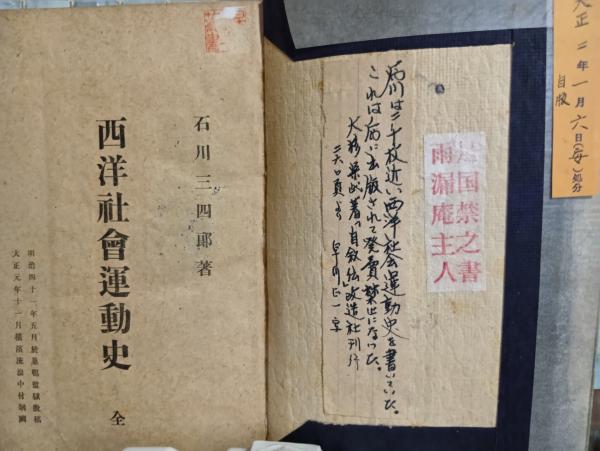 大正二年一月六日(毎)処分
自版
石川は二千枚近い西洋社会運動史を書いていた。
これは後に出版されて発売禁止になった。
大杉栄著「自叙伝」改造社刊行
国禁之書
雨漏庵主人
石川三四郎著
西洋社會運動史
全
明治四十一年五月於巣鴨監獄脱稿
大正元年十一月横濱